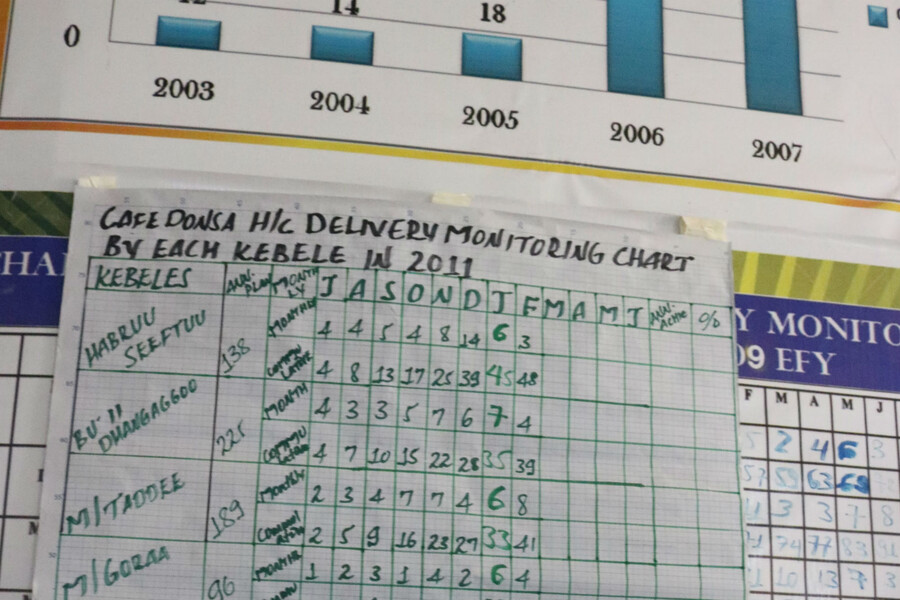 14
18
0
2003 2004 2005 2006 2007
CAFE DONSA H/C DELIVERY MONITORING CHART
BY EACH KEBELE IN 2011
KEBELES ANN. PLAN MONTHLY J A S O N D J F M A M J O/D
HABRUU SEEFTUU 138 4 4 5 4 8 14 6 3
4 8 13 17 25 39 45 48
BU'II DHANGAGGOO 225 MONTH 4 3 3 5 7 6 7 4
4 7 10 15 22 28 35 39
M/TADDEE 189 MONTHLY 2 3 4 7 7 4 6 8
2 5 9 16 23 27 33 41
M/GORAA 96 1 2 3 1 4 2 6 4
HA
Y MONITO
09 EFY
F M A M J
2 4 6 3
57 59 63 69
3 3 7 8
74 77 83 91
10 13 7 3